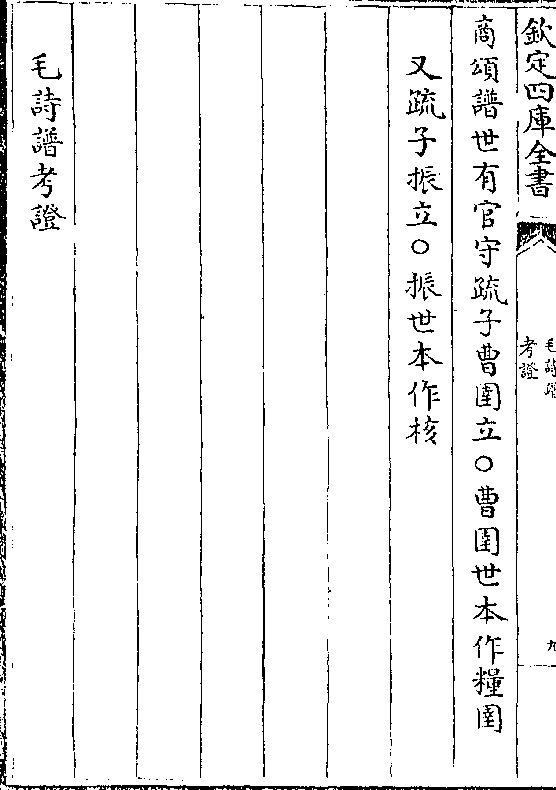 欽定四庫全書
毛詩譜
考證
九
商頌譜世有官守疏子曹圉立○曹圉世本作糧圉
又疏子振立○振世本作核
毛詩譜考證